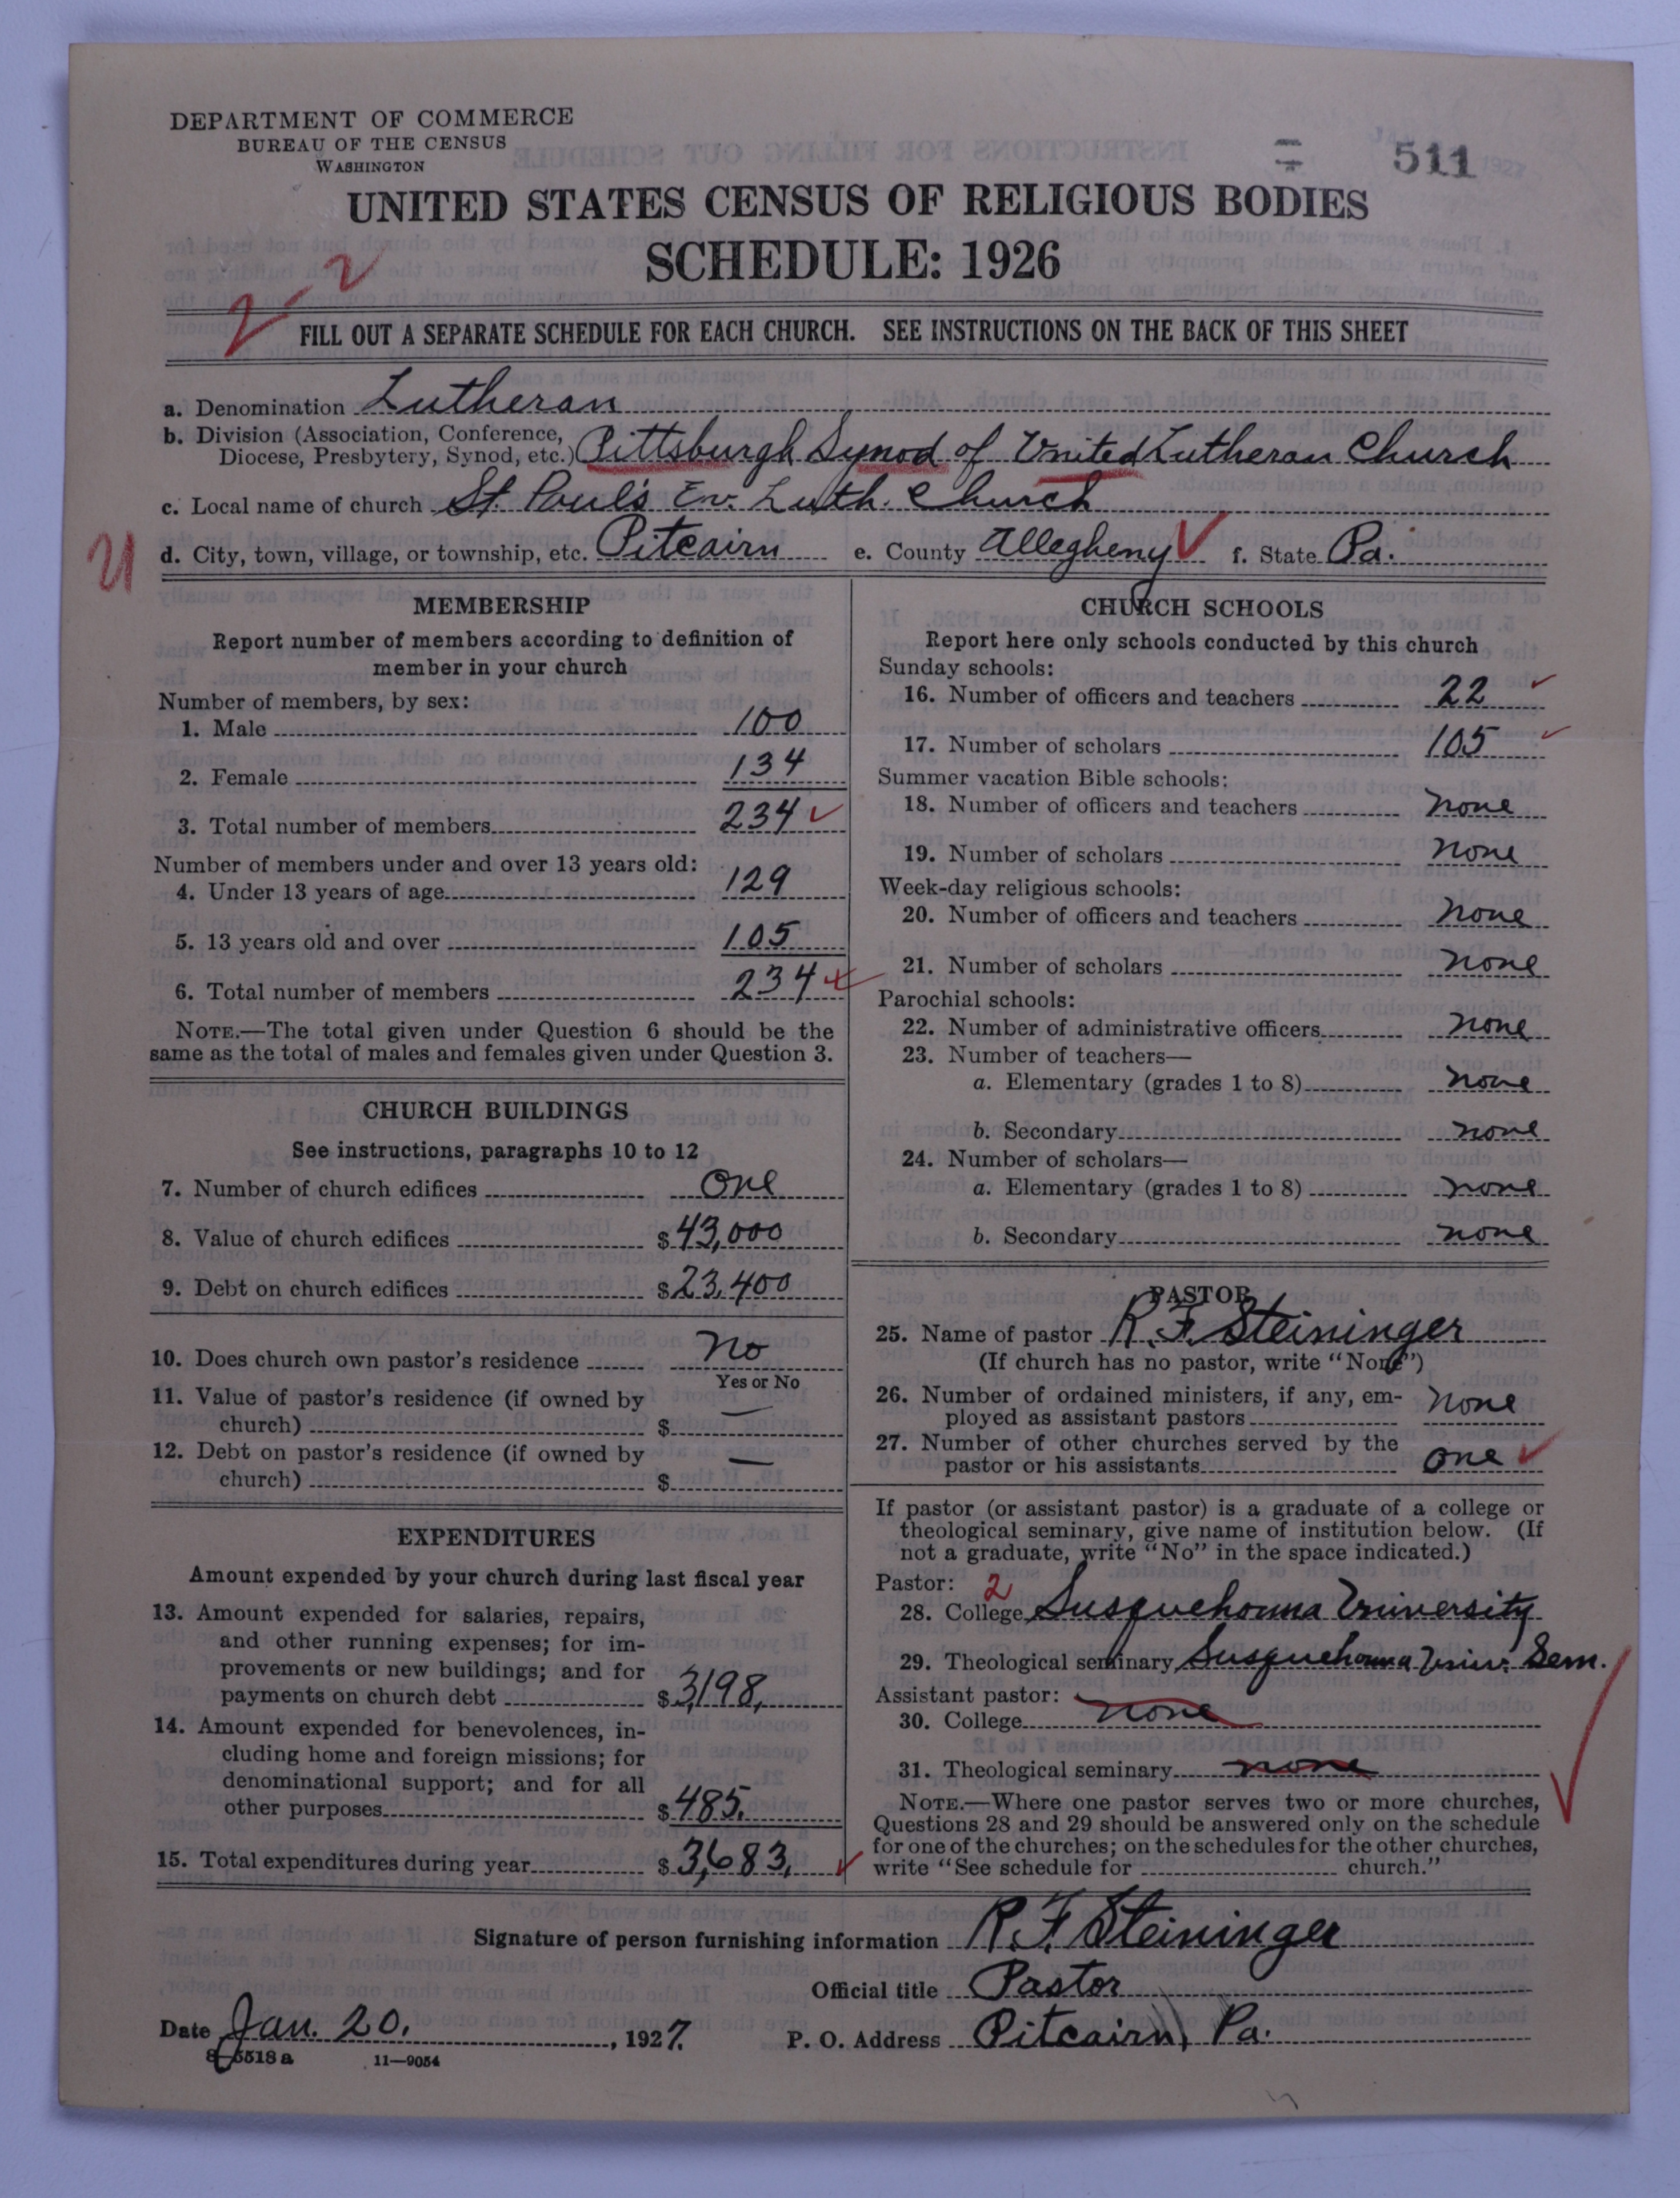 DEPARTMENT OF COMMERCE
BUREAU OF THE CENSUS
WASHINGTON
511
UNITED STATES CENSUS OF RELIGIOUS BODIES
SCHEDULE: 1926
2-2
FILL OUT A SEPARATE SCHEDULE FOR EACH CHURCH. SEE INSTRUCTIONS ON THE BACK OF THIS SHEET
a. Denomination Lutheran
b. Division (Association, Conference, Diocese, Presbytery, Synod, etc.) Pittsburgh Synod of United Lutheran Church
c. Local name of church St. Paul's Ev. Luth. Church
d. City, town, village, or township, etc. Pitcairn e. County Allegheny f. State Pa.
MEMBERSHIP
Report number of members according to definition of
member in your church
Number of members, by sex:
1. Male 100
2. Female 134
3. Total number of members 234
Number of members under and over 13 years old:
4. Under 13 years of age 129
5. 13 years old and over 105
6. Total number of members 234
NOTE.—The total given under Question 6 should be the
same as the total of males and females given under Question 3.
CHURCH BUILDINGS
See instructions, paragraphs 10 to 12
7. Number of church edifices One
8. Value of church edifices $43,000
9. Debt on church edifices $23,400
10. Does church own pastor's residence No
Yes or No
11. Value of pastor's residence (if owned by
church) $ —
12. Debt on pastor's residence (if owned by
church) $ —
EXPENDITURES
Amount expended by your church during last fiscal year
13. Amount expended for salaries, repairs,
and other running expenses; for im-
provements or new buildings; and for
payments on church debt $3,198.
14. Amount expended for benevolences, in-
cluding home and foreign missions; for
denominational support; and for all
other purposes $485.
15. Total expenditures during year $3,683.
CHURCH SCHOOLS
Report here only schools conducted by this church
Sunday schools:
16. Number of officers and teachers 22
17. Number of scholars 105
Summer vacation Bible schools:
18. Number of officers and teachers none
19. Number of scholars none
Week-day religious schools:
20. Number of officers and teachers none
21. Number of scholars none
Parochial schools:
22. Number of administrative officers none
23. Number of teachers—
a. Elementary (grades 1 to 8) none
b. Secondary none
24. Number of scholars—
a. Elementary (grades 1 to 8) none
b. Secondary none
PASTOR
25. Name of pastor R. F. Steininger
(If church has no pastor, write "None")
26. Number of ordained ministers, if any, em-
ployed as assistant pastors none
27. Number of other churches served by the
pastor or his assistants one
If pastor (or assistant pastor) is a graduate of a college or
theological seminary, give name of institution below. (If
not a graduate, write "No" in the space indicated.)
Pastor: 2
28. College Susquehanna University
29. Theological seminary Susquehanna Univ. Sem.
Assistant pastor:
30. College none
31. Theological seminary none
NOTE.—Where one pastor serves two or more churches,
Questions 28 and 29 should be answered only on the schedule
for one of the churches; on the schedules for the other churches,
write "See schedule for church."
Signature of person furnishing information R. F. Steininger
Official title Pastor
Date Jan. 20., 1927. P. O. Address Pitcairn, Pa.
8—5518 a 11—9054